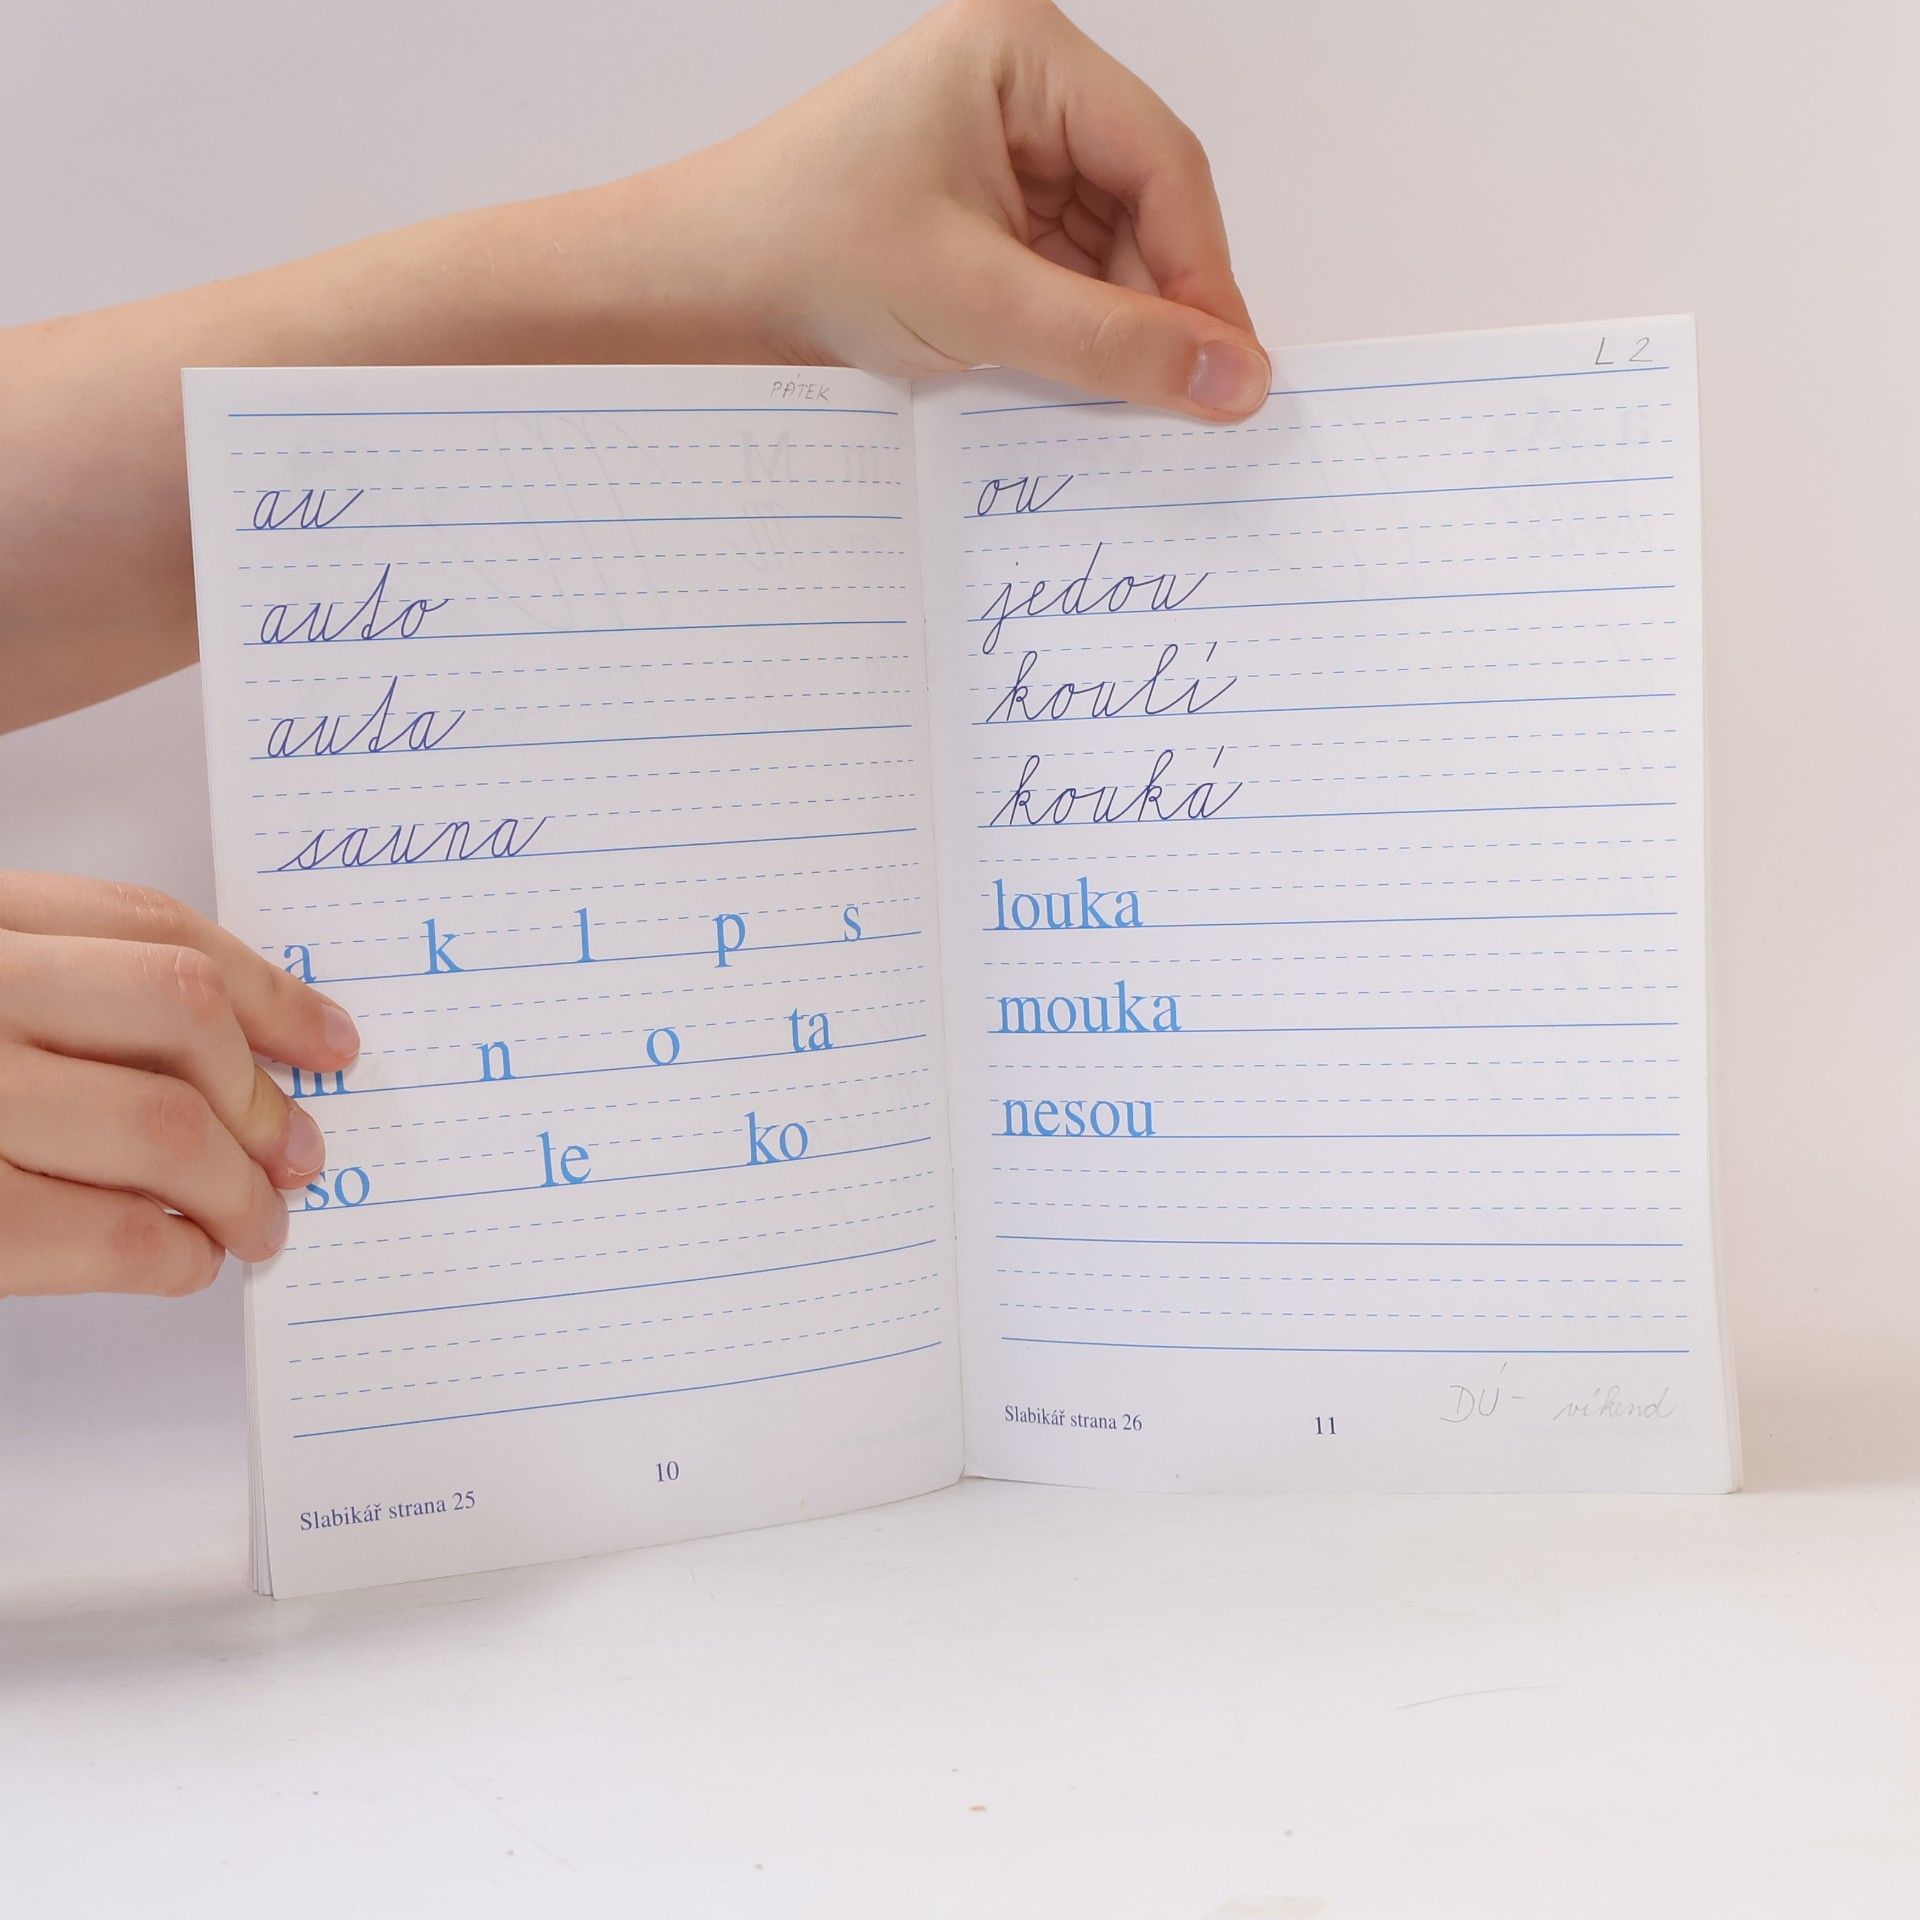 PÁTEK
au
auto
auta
sauna
a k l p s
m n o ta
so le ko
10
Slabikář strana 25
L 2
ou
jedou
koulí
kouká
louka
mouka
nesou
Slabikář strana 26 11 DÚ - víkend